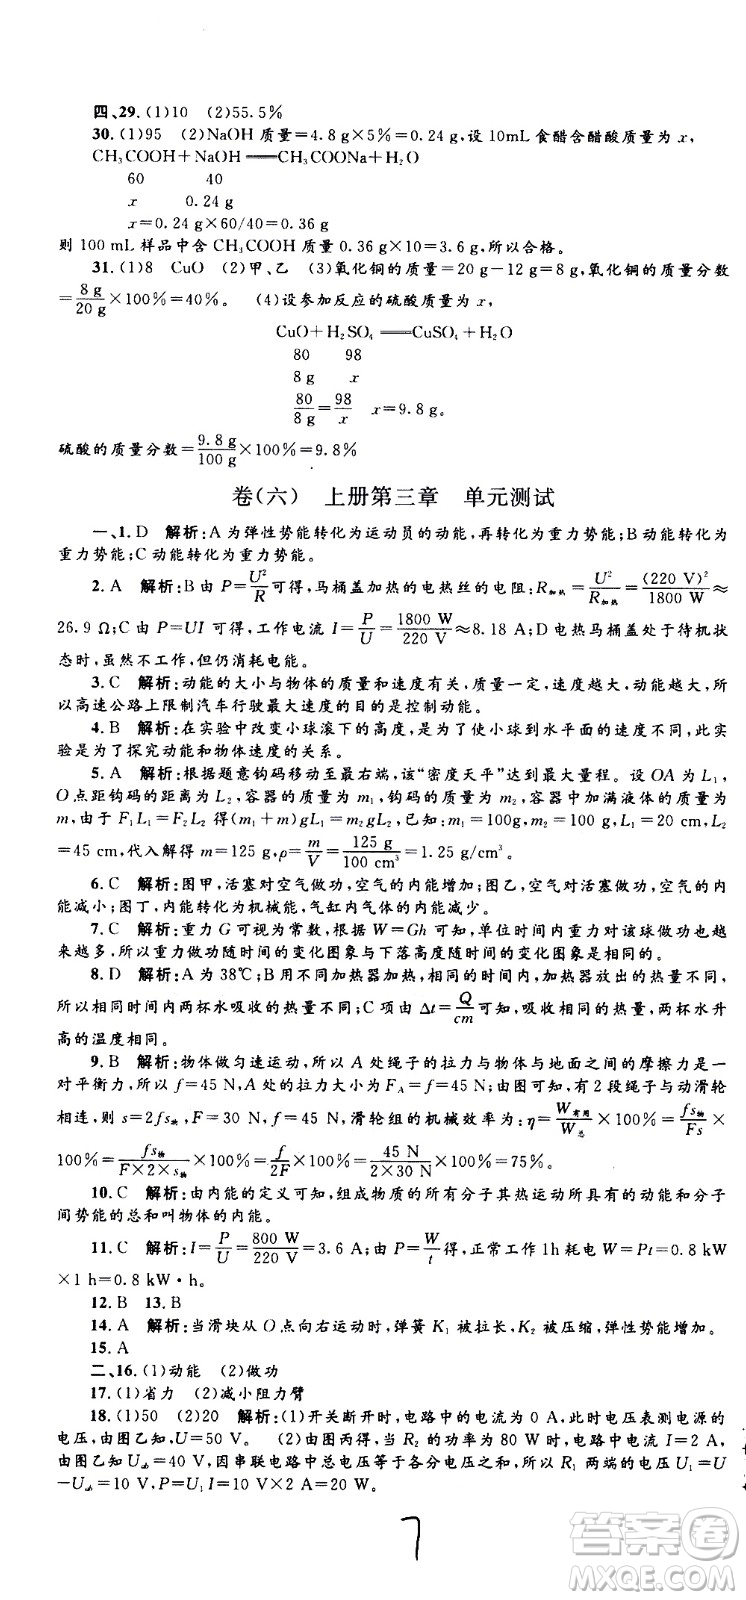 四、29.(1)10　(2)55.5%
30.(1)95　(2)NaOH 质量=4.8 g×5%=0.24 g,设 10mL 食醋含醋酸质量为 x,
CH₃COOH+NaOH══CH₃COONa+H₂O
60　　40
x　　0.24 g
x=0.24 g×60/40=0.36 g
则 100 mL 样品中含 CH₃COOH 质量 0.36 g×10=3.6 g,所以合格。
31.(1)8　CuO　(2)甲、乙　(3)氧化铜的质量=20 g-12 g=8 g,氧化铜的质量分数
=8 g/20 g×100%=40%。　(4)设参加反应的硫酸质量为 x,
CuO+H₂SO₄══CuSO₄+H₂O
80　　98
8 g　　x
80/8 g=98/x　x=9.8 g。
硫酸的质量分数=9.8 g/100 g×100%=9.8%
卷(六)　上册第三章　单元测试
一、1. D　解析:A 为弹性势能转化为运动员的动能,再转化为重力势能;B 动能转化为
重力势能;C 动能转化为重力势能。
2. A　解析:B 由 P=U²/R 可得,马桶盖加热的电热丝的电阻:R加热=U²/R加热=(220 V)²/1800 W≈
26.9 Ω;C 由 P=UI 可得,工作电流 I=P/U=1800 W/220 V≈8.18 A;D 电热马桶盖处于待机状
态时,虽然不工作,但仍消耗电能。
3. C　解析:动能的大小与物体的质量和速度有关,质量一定,速度越大,动能越大,所
以高速公路上限制汽车行驶最大速度的目的是控制动能。
4. B　解析:在实验中改变小球滚下的高度,是为了使小球到水平面的速度不同,此实
验是为了探究动能和物体速度的关系。
5. A　解析:根据题意钩码移动至最右端,该“密度天平”达到最大量程。设 OA 为 L₁,
O 点距钩码的距离为 L₂,容器的质量为 m₁,钩码的质量为 m₂,容器中加满液体的质量为
m,由于 F₁L₁=F₂L₂ 得(m₁+m)gL₁=m₂gL₂,已知:m₁=100g,m₂=100 g,L₁=20 cm,L₂
=45 cm,代入解得 m=125 g,ρ=m/V=125 g/100 cm³=1.25 g/cm³。
6. C　解析:图甲,活塞对空气做功,空气的内能增加;图乙,空气对活塞做功,空气的内
能减小;图丁,内能转化为机械能,气缸内气体的内能减少。
7. C　解析:重力 G 可视为常数,根据 W=Gh 可知,单位时间内重力对该球做功也越
来越多,所以重力做功随时间的变化图象与下落高度随时间的变化图象一样。
8. D　解析:A 为 38℃;B 用不同加热器加热,相同的时间内,加热器放出的热量不同,
所以相同时间内两杯水吸收的热量不同;C 项由 Δt=Q/cm可知,吸收相同的热量,两杯水升
高的温度相同。
9. B　解析:物体做匀速运动,所以 A 处绳子的拉力与物体与地面之间的摩擦力是一
对平衡力,所以 f=45 N,A 处的拉力大小也为 F_A=f=45 N;由图可知,有 2 段绳子与动滑轮
相连,则 s=2fs物,F=30 N,滑轮组的机械效率为:η=W有用/W总×100%=fs物/Fs×
100%=fs物/F×2×s物×100%=f/2F×100%=45 N/2×30 N×100%=75%。
10. C　解析:由内能的定义可知,组成物质的所有分子其热运动所具有的动能和分子
间势能的总和叫物体的内能。
11. C　解析:I=P/U=800 W/220 V=3.6 A,由 P=W/t得,正常工作 1h 耗电 W=Pt=0.8 kW
×1 h=0.8 kW·h。
12. B　13. B
14. A　解析:当滑块从 O 点向右运动时,弹簧 K₁ 被拉长,K₂ 被压缩,弹性势能增加。
15. A
二、16.(1)动能　(2)做功
17.(1)省力　(2)减小阻力臂
18.(1)50　(2)20　解析:(1)开关断开时,电路中的电流为 0 A,此时电压表测电源的
电压,由图乙知,U=50 V。　(2)由图丙得,当 R₂ 的功率为 80 W 时,电路中电流 I=2 A,
由图乙知 U并=40 V,因串联电路中总电压等于各分电压之和,所以 R₁ 两端的电压 U₁=U
-U并=50 V-40 V=10 V,R₁ 的功率 P=U₁I=10 V×2 A=20 W。
7
答案卷
MXQE.COM